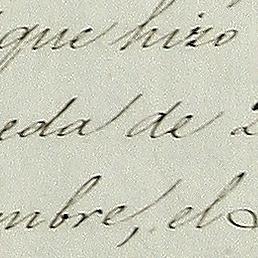 que hizo
eda de 2
mbre, el